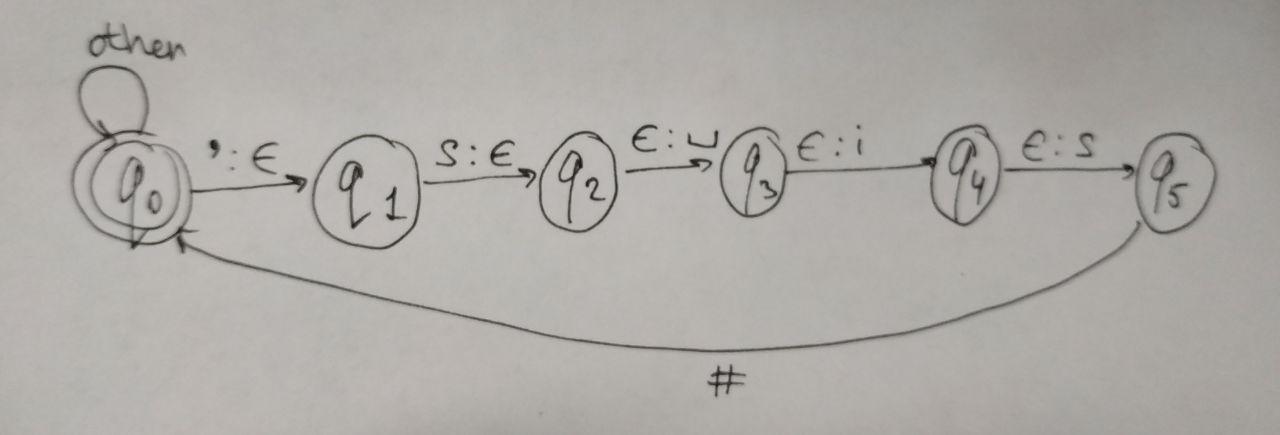 other
q0 ’:ϵ q1 s:ϵ q2 ϵ:␣ q3 ϵ:i q4 ϵ:s q5
#